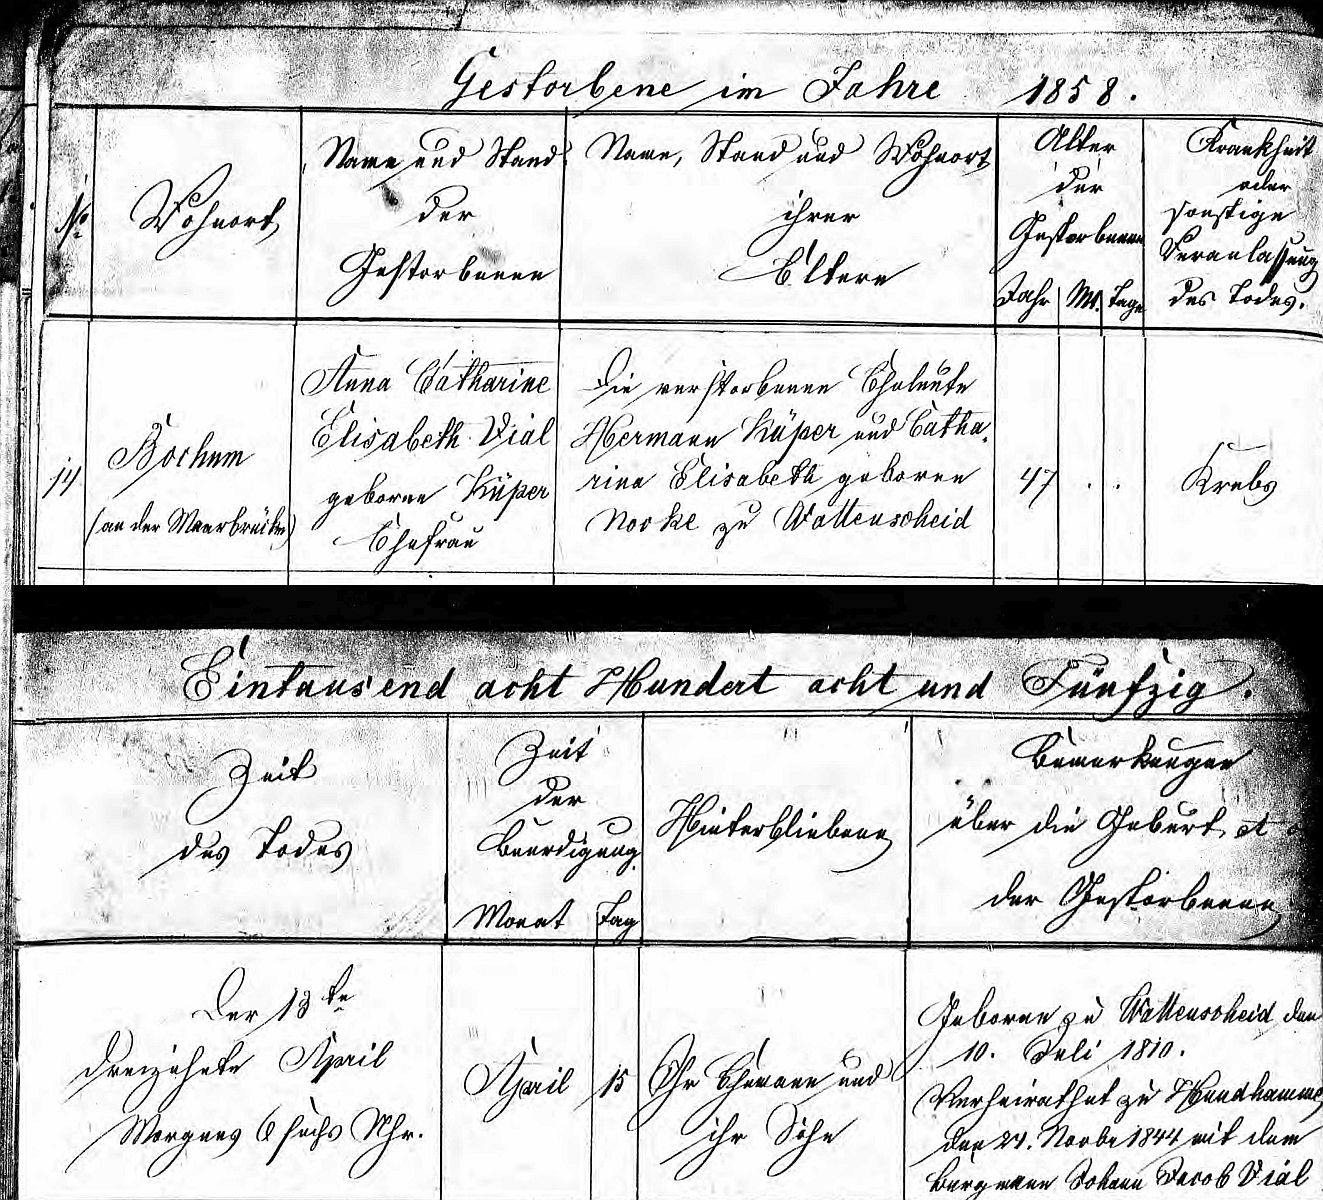 Gestorbene im Jahre 1858.
No
Wohnort
Name und Stand
der
Gestorbenen
Name, Stand und Wohnort
ihrer
Eltern
Alter
der
Gestorbenen
Jahr M. Tage
Krankheit
oder
sonstige
Veranlassung
des Todes.
14
Bochum
(an der Maarbrücke)
Anna Catharine
Elisabeth Vial
geborne Küper
Ehefrau
Die verstorbenen Eheleute
Hermann Küper und Catha-
rina Elisabeth geborene
Nocke zu Wattenscheid
47 . .
Krebs
Eintausend acht Hundert acht und Fünfzig.
Zeit
des Todes
Zeit
der
Beerdigung
Monat Tag
Hinterbliebene
Bemerkungen
über die Geburt et
der Gestorbenen
Der 13te
dreizehnte April
Morgens 6 sechs Uhr.
April 15
Ihr Ehemann und
ihr Sohn
Geboren zu Wattenscheid den
10. Juli 1810.
Verheirathet zu Hundhamme
den 24. Novbr 1844 mit dem
Bergmann Johann Jacob Vial